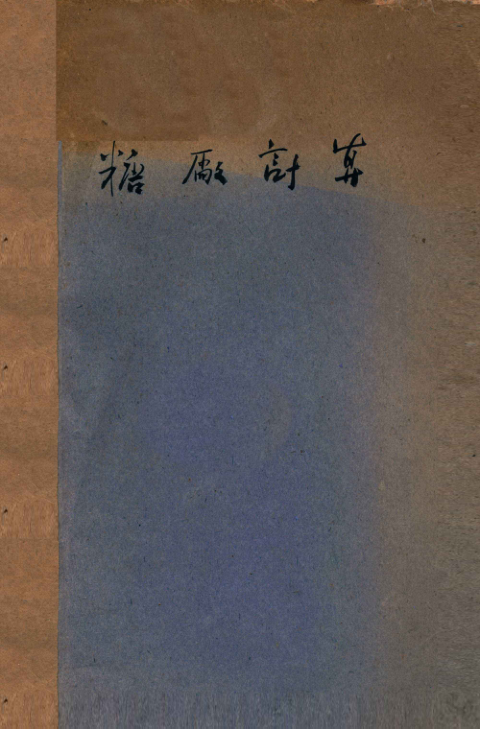 糖廠計算